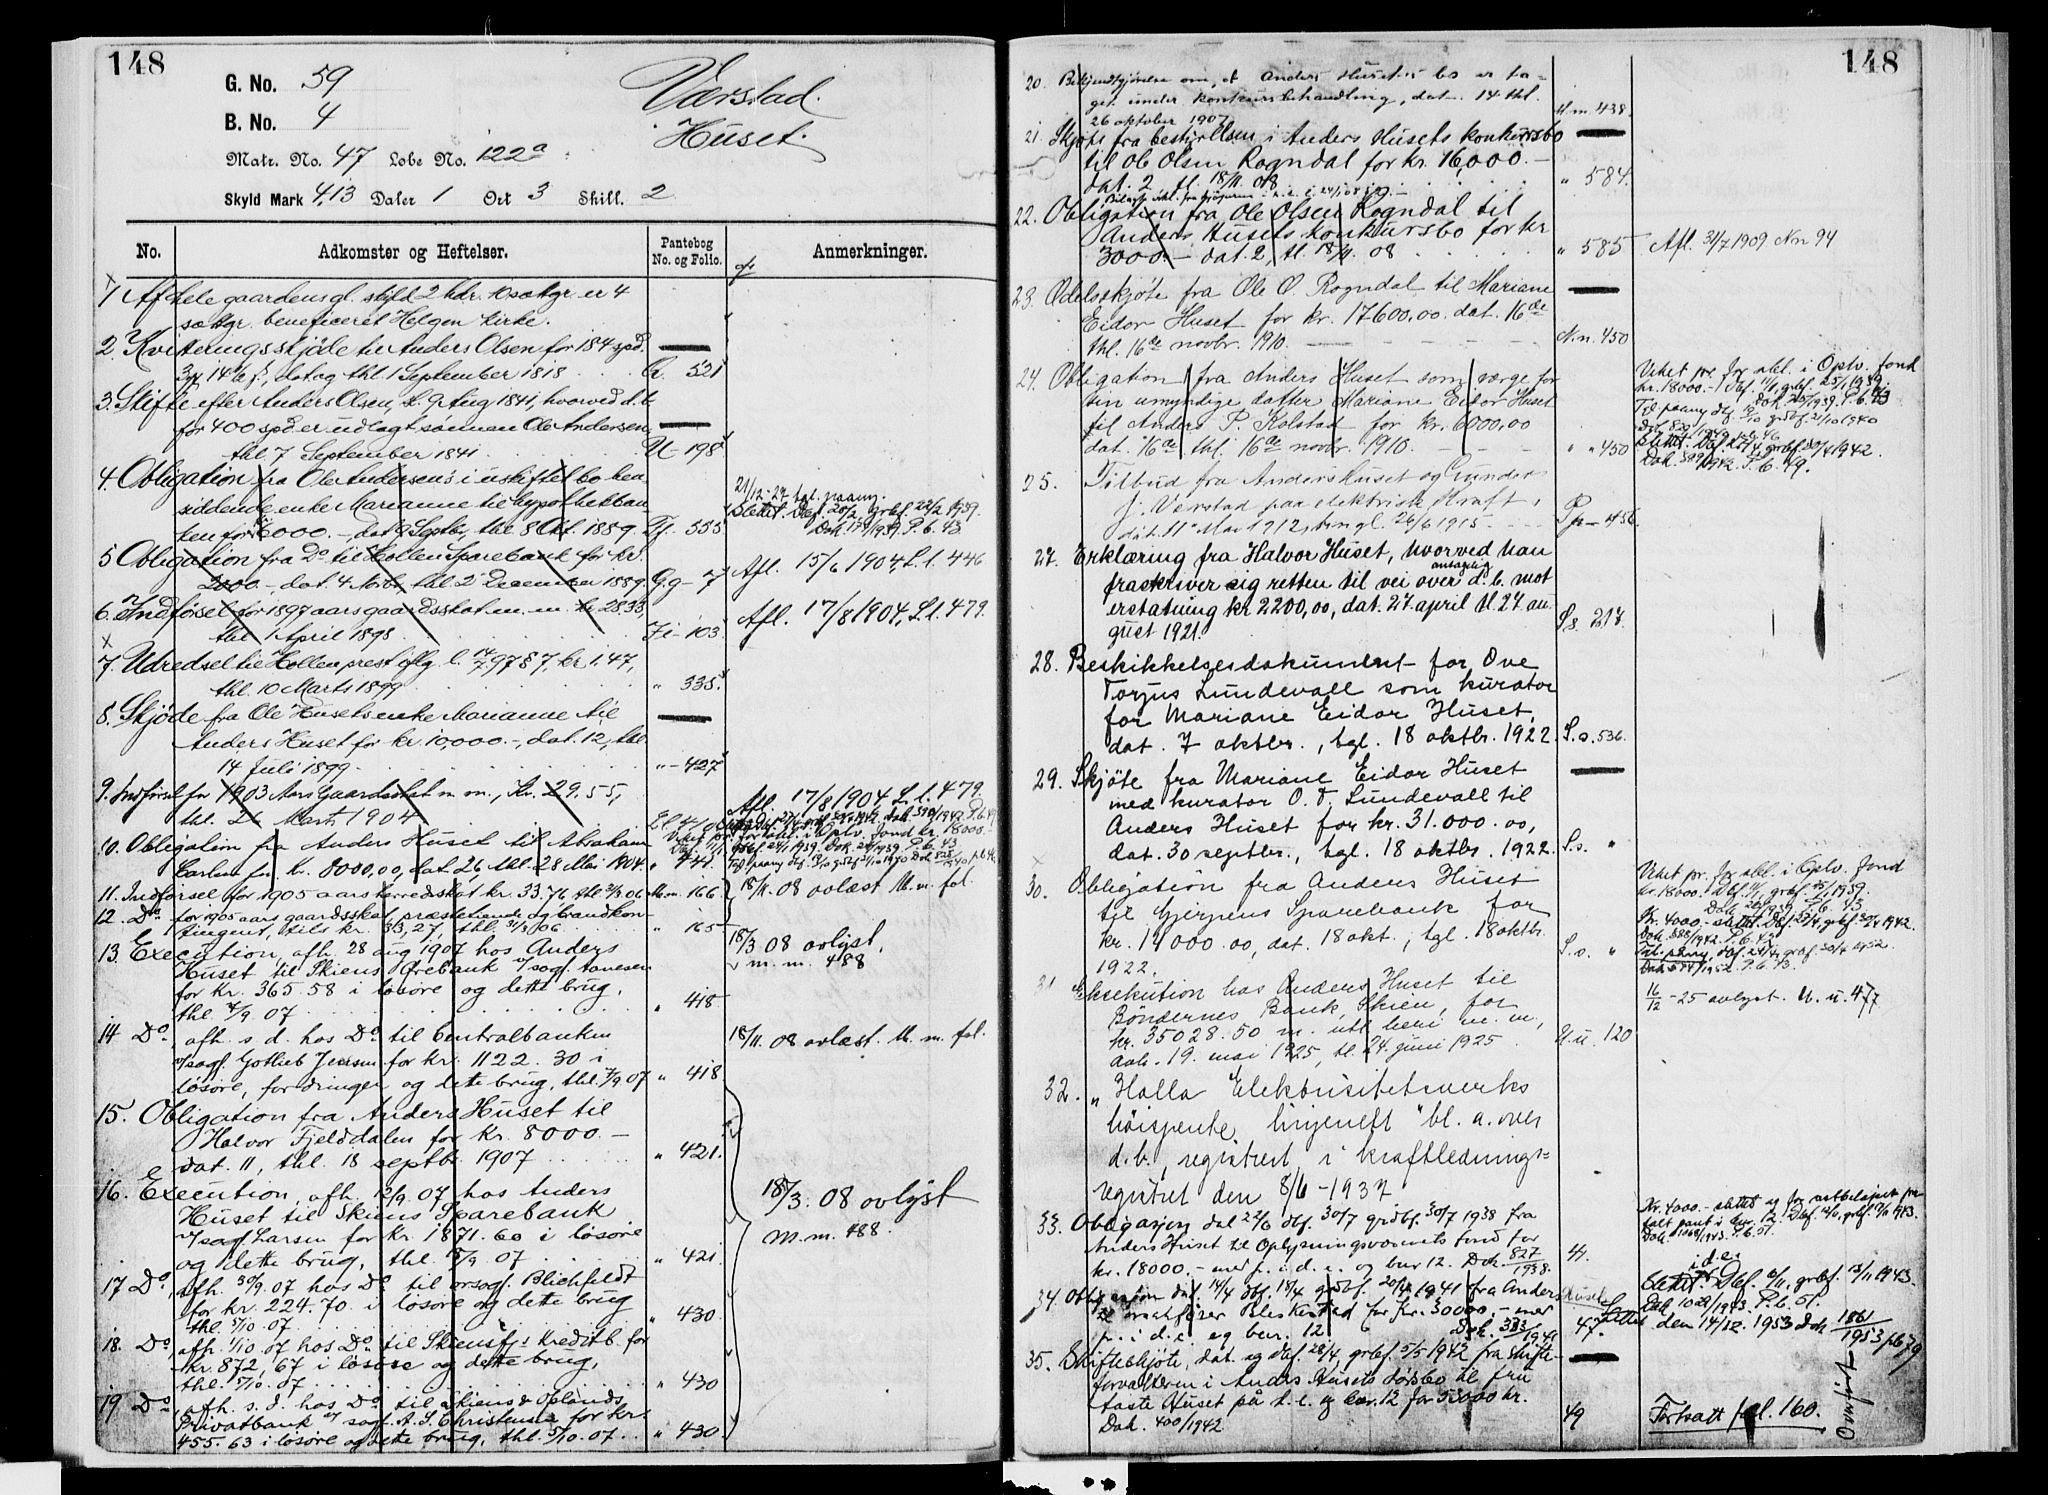 148
G. No. 59
B. No. 4
Matr. No. 47 Lobe No. 122a
Skyld Mark 4,13 Daler 1 Ort 3 Skill. 2
Værstad.
Huset.
No.
Adkomster og Heftelser.
Pantebog No. og Folio.
Anmerkninger.
1 Af hele gaardens gl. skyld 2 hdr. 10 sætgr. er 4
sætgr. beneficeret Helgen kirke.
2. Kvitteringsskjøde til Anders Olsen for 184 spd.
dat. og thl. 1 September 1818 Q. 521
3. Skifte efter Anders Olsen, s. 9 Aug 1841, hvorved d. b.
for 400 spd er udlagt sønnen Ole Andersen,
thl. 7 September 1841 U- 198
4. Obligation fra Ole Andersens i uskiftet bo hen-
siddende enke Marianne til hypothekban-
ken for 6000.-, dat. 9 Septbr, thl. 8 Okt. 1889. Ff. 555
21/12-27 tgl. paany.
Slettet. Dbf. 20/2, grbf. 22/2 1939.
5 Obligation fra Do til Hollen Sparebank for kr.
2000.-, dat. 4 Novbr. thl. 2 December 1889. Gg- 7
Afl. 15/6 1904, L. l. 446
6. Indførsel for 1897 aars gaardsskat m. m. kr. 28.33,
thl. 1 April 1898 Ii- 103
Afl. 17/8 1904, L. l. 479.
7. Udredsel til Hollen prest kr. 1.47,
thl. 10 Marts 1899 " 335
8. Skjøde fra Ole Husets enke Marianne til
Anders Huset for kr. 10,000.-, dat. 12, thl.
14 Juli 1899 "- 427
9. Indførsel for 1903 Aars Gaardsskat m m., Kr. 29.55,
thl. 26 Marts 1904
Afl. 17/8 1904 L. l. 479.
10. Obligation fra Anders Huset til Abraham
Carlsen for kr. 8000,00, dat. 26, thl. 28 Mai 1904. " 441.
11. Indførsel for 1905 aars herredskat kr. 33.76 thl. 31/3 06 M.m. 166
18/11. 08 avlæst M. m. fol.
12. Do for 1905 aars gaardsskat, præstetiende og brandkon-
tingent, tils kr. 33,27, thl. 31/3 06 " 165
13. Execution, afh. 28 aug 1907 hos Anders
Huset til Skiens Ørebank v/ sagf. Aanesen
for kr. 365.58 i løsøre og dette brug,
thl. 7/9 07 " 418
18/3 08 avlyst.
m. m. 488
14 Do, afh. s. d. hos Do til Centralbanken
v/sagf. Gotlieb Jensen for kr. 1122.30 i
løsøre, fordringer og dette brug, thl. 7/9 07 " 418
18/11. 08 avlæst. M. m. fol.
15. Obligation fra Anders Huset til
Halvor Fjelddalen for kr. 8000.-
dat. 11, thl. 18 septbr 1907 " 421.
16. Execution, afh. 12/9. 07 hos Anders
Huset til Skiens Sparebank
v/sagf. Larsen for kr 1871.60 i løsøre
og dette brug, thl. 07 " 421
18/3. 08 avlyst
m. m. 488.
17 Do, afh. 30/9. 07 hos Do til orsagf. Blichfeldt
for kr. 224.70. i løsøre og dette brug
thl. 5/10. 07 " 430
18. Do, afh. 1/10. 07 hos Do til Skiensfj. Kreditb. for
kr. 872,67 i løsøre og dette brug,
thl. 5/10. 07 " 430
19 Do, afh. s. d. hos Do til Skiens & Oplands
Privatbank v/ sagf. A. S. Christensen for kr.
455.63 i løsøre og dette brug, thl. 5/10. 07. " 430
148
20. Bekjendtgjørelse om, at Anders Husets bo er ta-
get under konkursbehandling, dat. 14 thl.
26 oktober 1907 M.m. 438.
21. Skjøte fra bestyrelsen i Anders Husets konkursbo
til Ole Olsen Rogndal for kr. 16,000.-
dat. 2 tl. 18/11. 08 " 584.
22. Obligation fra Ole Olsen Rogndal til
Anders Husets konkursbo for kr
3000.- dat. 2, tl. 18/11. 08 " 585
Afl. 31/7 1909 N.n 94
23. Odelsskjøte fra Ole O. Rogndal til Mariane
Eidor Huset for kr. 17600.00. dat. 16de
thl. 16de novbr. 1910. N.n. 450
24. Obligation fra Anders Huset som værge for
sin umyndige datter Mariane Eidor Huset
til Anders P. Kolstad for kr. 6000,00
dat. 16de thl. 16de novbr. 1910. " " 450
Veket pr. for obl. i Oplv. fond
kr. 18000.-
25. Tilbud fra Anders Huset og Gunder
J. Verstad paa elektrisk kraft,
dat. 11 Mai 1912, tingl. 26/6 1915 Pp- 456.
27. Erklæring fra Halvor Huset, hvorved han
fraskriver sig retten til vei over d. b. mot
antagelig
erstatning kr 2200,00, dat. 27. april tl. 27. au
gust 1921. S s. 217.
28. Beskikkelsesdokument for Ove
Torjus Lundevall som kurator
for Mariane Eidor Huset,
dat. 7 oktbr., tgl. 18 oktbr. 1922. S.s. 536.
29. Skjöte fra Mariane Eidor Huset
med kurator O. T. Lundevall til
Anders Huset for kr. 31.000.00,
dat. 30 septbr., tgl. 18 oktbr. 1922. S.s. "
30. Obligation fra Anders Huset
til Gjerpens Sparebank for
kr. 14000.00, dat. 18 okt., tgl. 18 oktbr.
1922. S.s. "
Veket pr. for obl. i Oplv. fond
31. Eksekution hos Anders Huset til
Bøndernes Bank, Skien, for
kr. 35028.50 m. utl. heri m. m.,
avh. 19. mai 1925, tl. 24. juni 1925 U.u. 120
16/12 - 25 avlyst. U. u. 477
32. "Holla Elektrisitetsverks
høispente linjenett" bl. a. over
d. b., registrert i kraftlednings-
registret den 8/6 - 1937
33. Obligasjon dat 22/6 dbf. 30/7 grdbf. 30/7 1938 fra
Anders Huset til Oplysningsvesenets fond for
kr. 18000.- med p. i. d. e. og bnr 12. Dok. 827/1938. 41.
34. Obligasjon dat. 14/4 dbf. 18/4 grdbf. 20/4 1941 fra Anders Huset
for kr. 30000,- med
p. i d. e. og bnr. 12. 47.
Slettet den 14/12. 1953 Dok 1861/1953 pb 79
35. Skifteskjøte, dat. og dbf. 28/4, grbf. 5/5 1942 fra skifte-
forvalteren i Anders Husets dødsbo til fru
Aaste Huset på d. e. og bnr. 12 for 53000 kr.
Dok. 400/1942. 49
Fortsatt fol. 160.
Overført